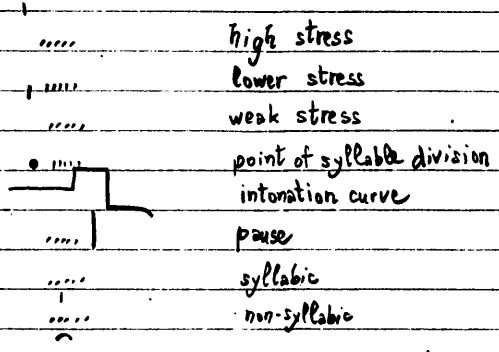 high stress
lower stress
weak stress
point of syllable division
intonation curve
pause
syllabic
non-syllabic